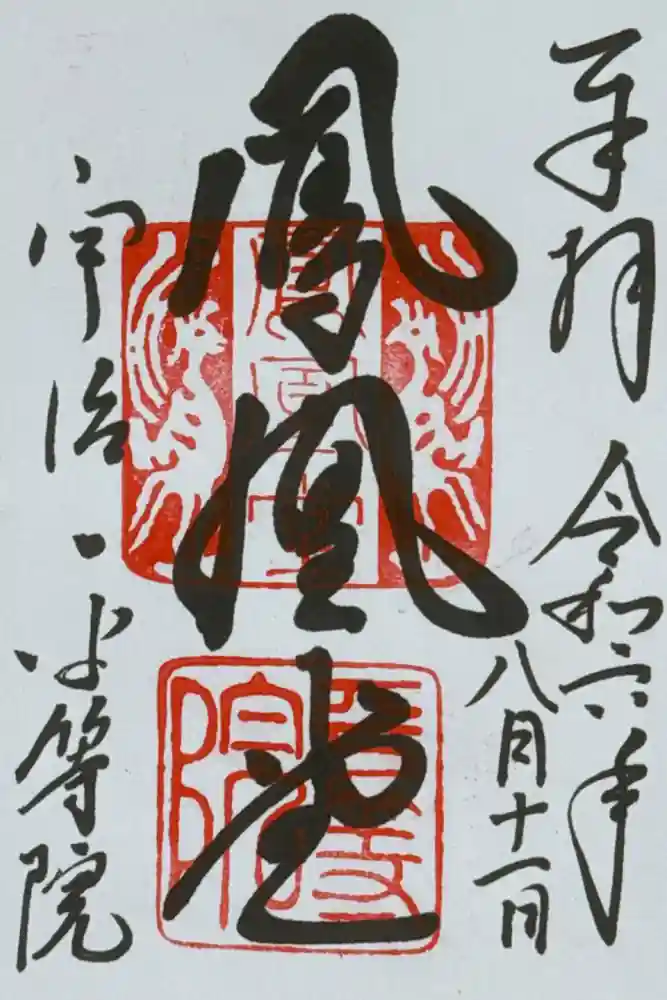 奉拝
令和六年
八月十一日
鳳凰堂
宇治 平等院
鳳凰堂